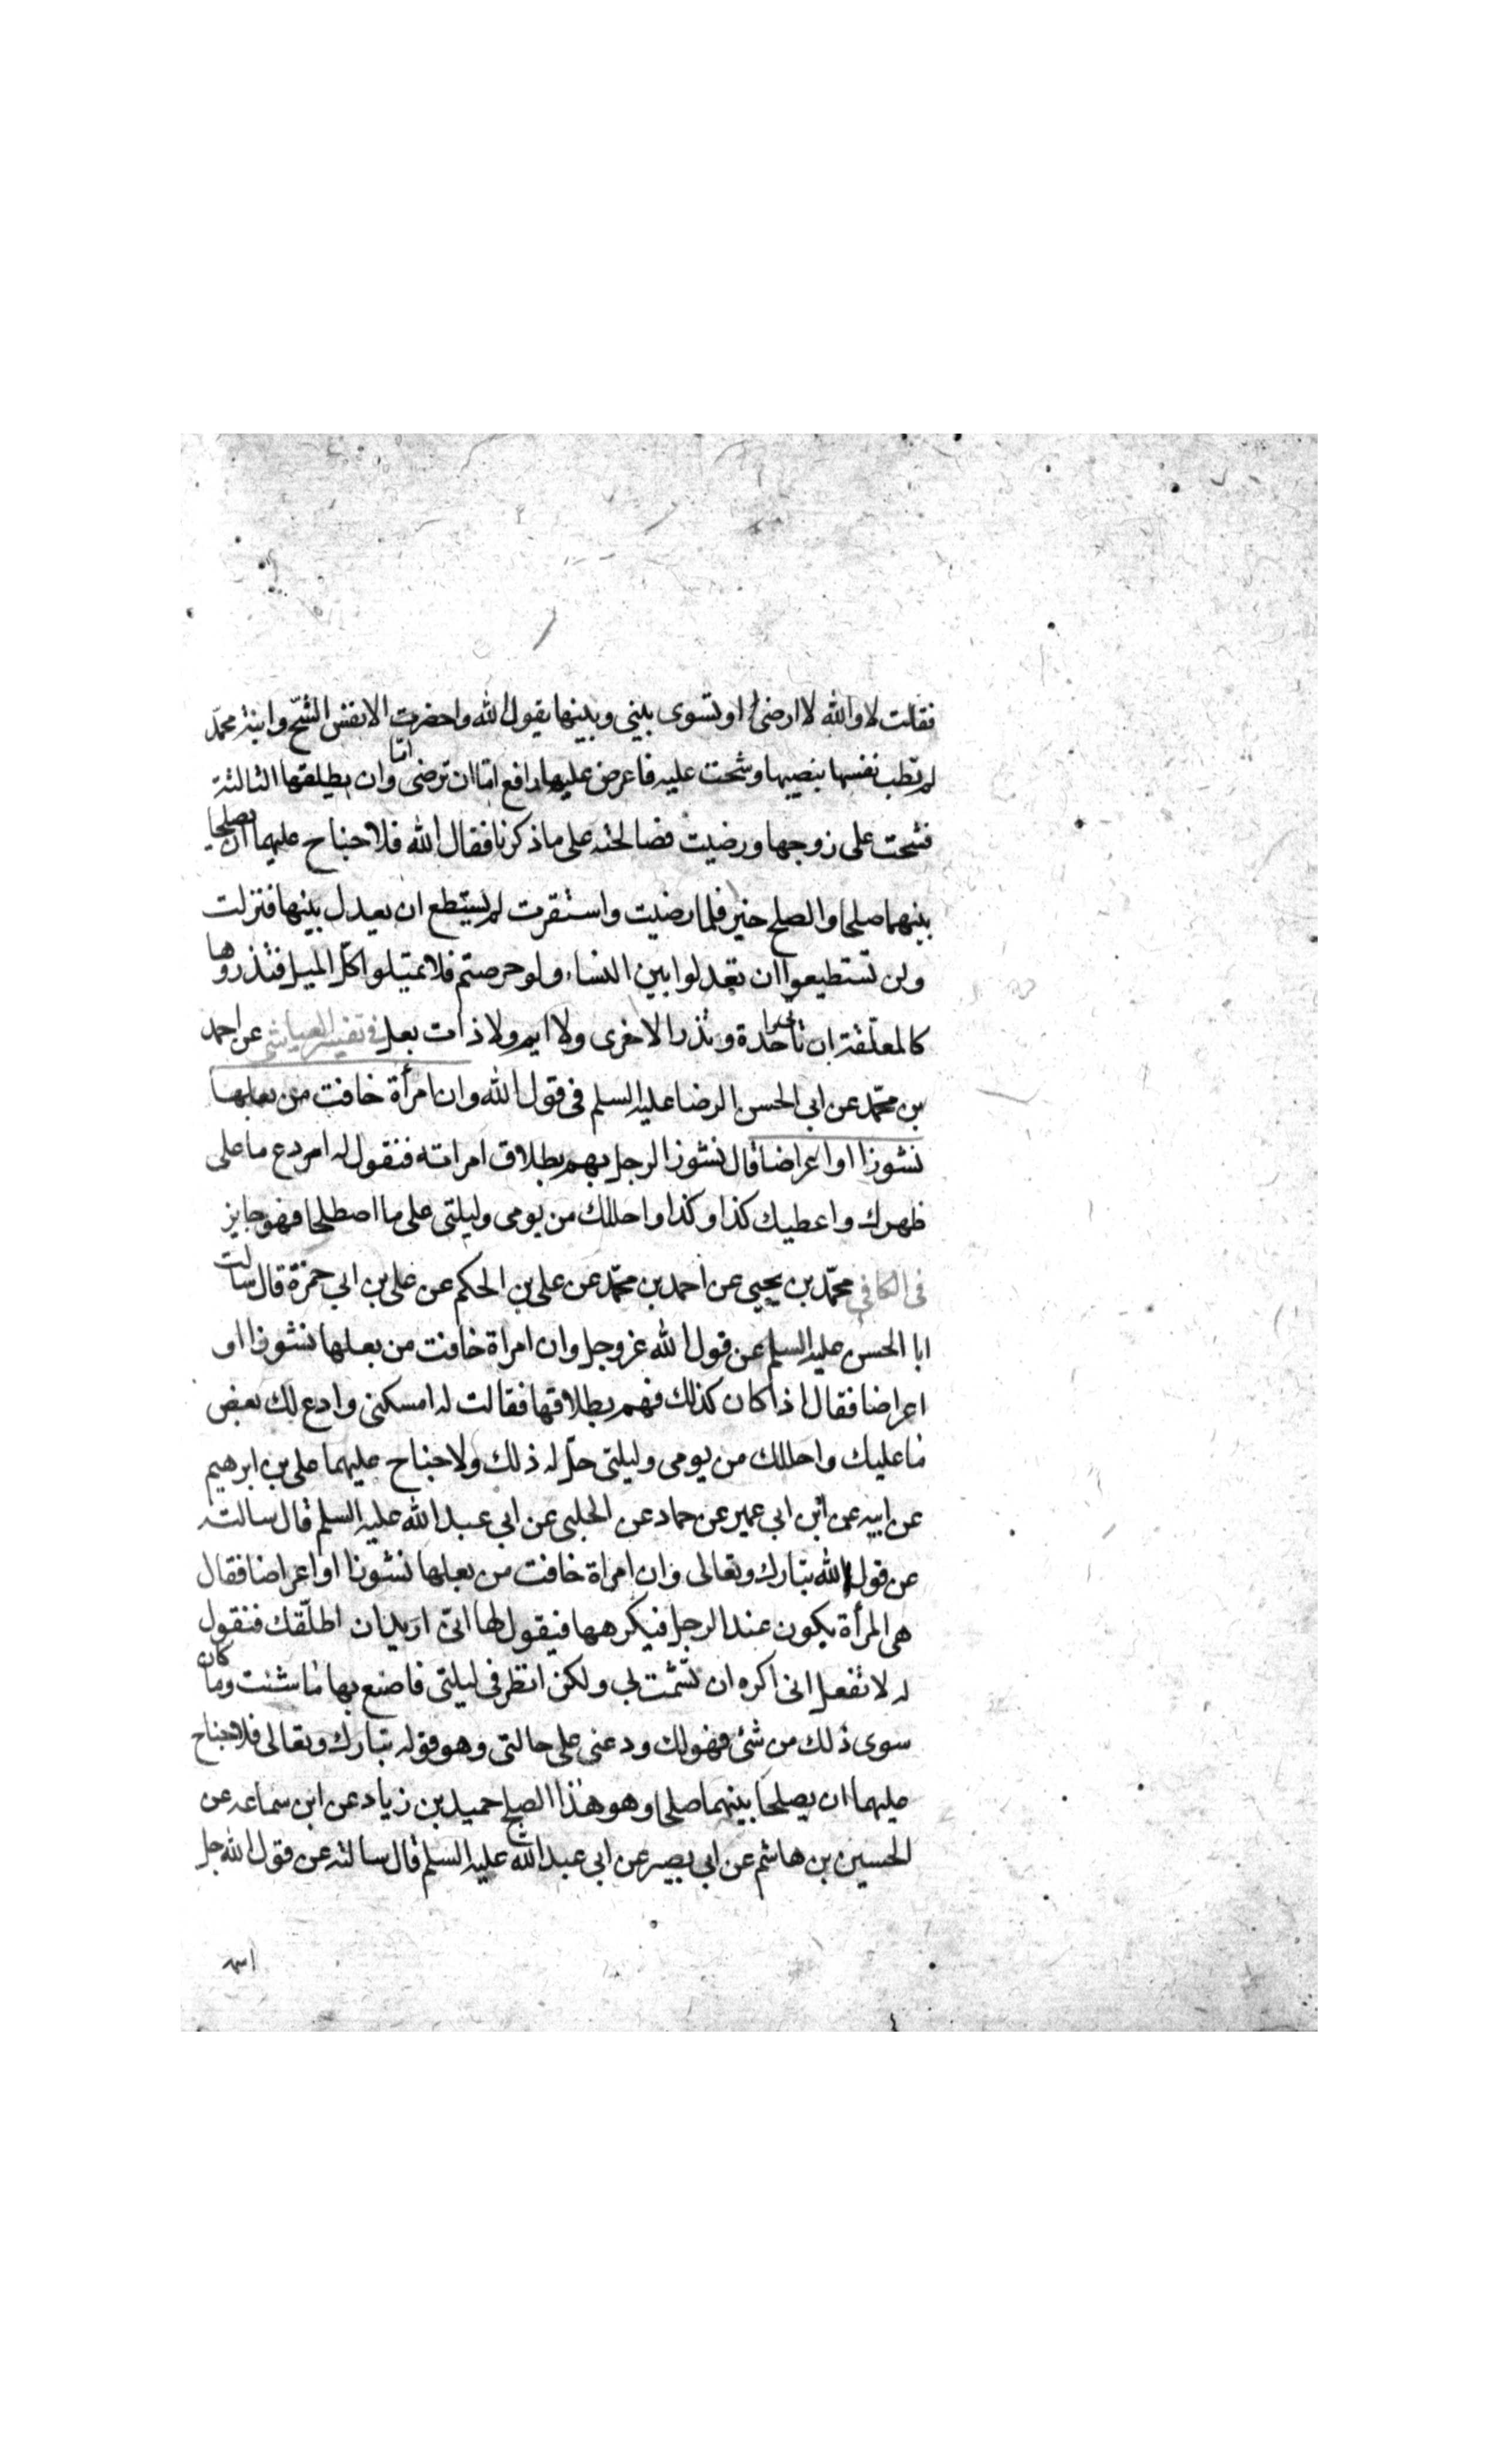 فقالت لا والله لا ارضى او تسوى بيني وبينها يقول الله واحضرت الانفس الشح وابنة محمد
لم تطب نفسها بنصيبها وشحت عليه فاعرض عليها رافع اما ان ترضى واما ان يطلقها الثالثة
فشحت على زوجها ورضيت فصالحته على ما ذكرنا فقال الله فلا جناح عليهما ان يصلحا
بينهما صلحا والصلح خير فلما رضيت واستقرت لم يستطع ان يعدل بينها فنزلت
ولن تستطيعوا ان تعدلوا بين النساء ولو حرصتم فلا تميلوا كل الميل فتذروها
كالمعلقة ان تاتى واحدة وتذر الاخرى ولا ايم ولا ذات بعل في تفسير العياشي عن احمد
بن محمد عن ابي الحسن الرضا عليه السلم في قول الله وان امرأة خافت من بعلها
نشوزا او اعراضا قال نشوز الرجل يهم بطلاق امراته فتقول له امر دع ما على
ظهرك واعطيك كذا وكذا واحللك من يومى وليلتى على ما اصطلحا فهو جايز
في الكافي محمد بن يحيى عن احمد بن محمد عن على بن الحكم عن على بن ابي حمزة قال سالت
ابا الحسن عليه السلم عن قول الله عز وجل وان امراة خافت من بعلها نشوزا او
اعراضا فقال اذا كان كذلك فهم بطلاقها فقالت له امسكنى وادع لك بعض
ما عليك واحللك من يومى وليلتى حل له ذلك ولا جناح عليهما على بن ابرهيم
عن ابيه عن ابن ابي عمير عن حماد عن الحلبى عن ابي عبد الله عليه السلم قال سالته
عن قول الله تبارك وتعالى وان امراة خافت من بعلها نشوزا او اعراضا فقال
هى المرأة يكون عند الرجل فيكرهها فيقول لها انى اريد ان اطلقك فتقول
له لا تفعل انى اكره ان تشمت بى ولكن انظر في ليلتى فاصنع بها ما شئت وما كان
سوى ذلك من شئ فهو لك ودعنى على حالتى وهو قوله تبارك وتعالى فلا جناح
عليهما ان يصلحا بينهما صلحا وهو هذا الصلح حميد بن زياد عن ابن سماعه عن
الحسين بن هاشم عن ابي بصير عن ابي عبد الله عليه السلم قال سالته عن قول الله جل